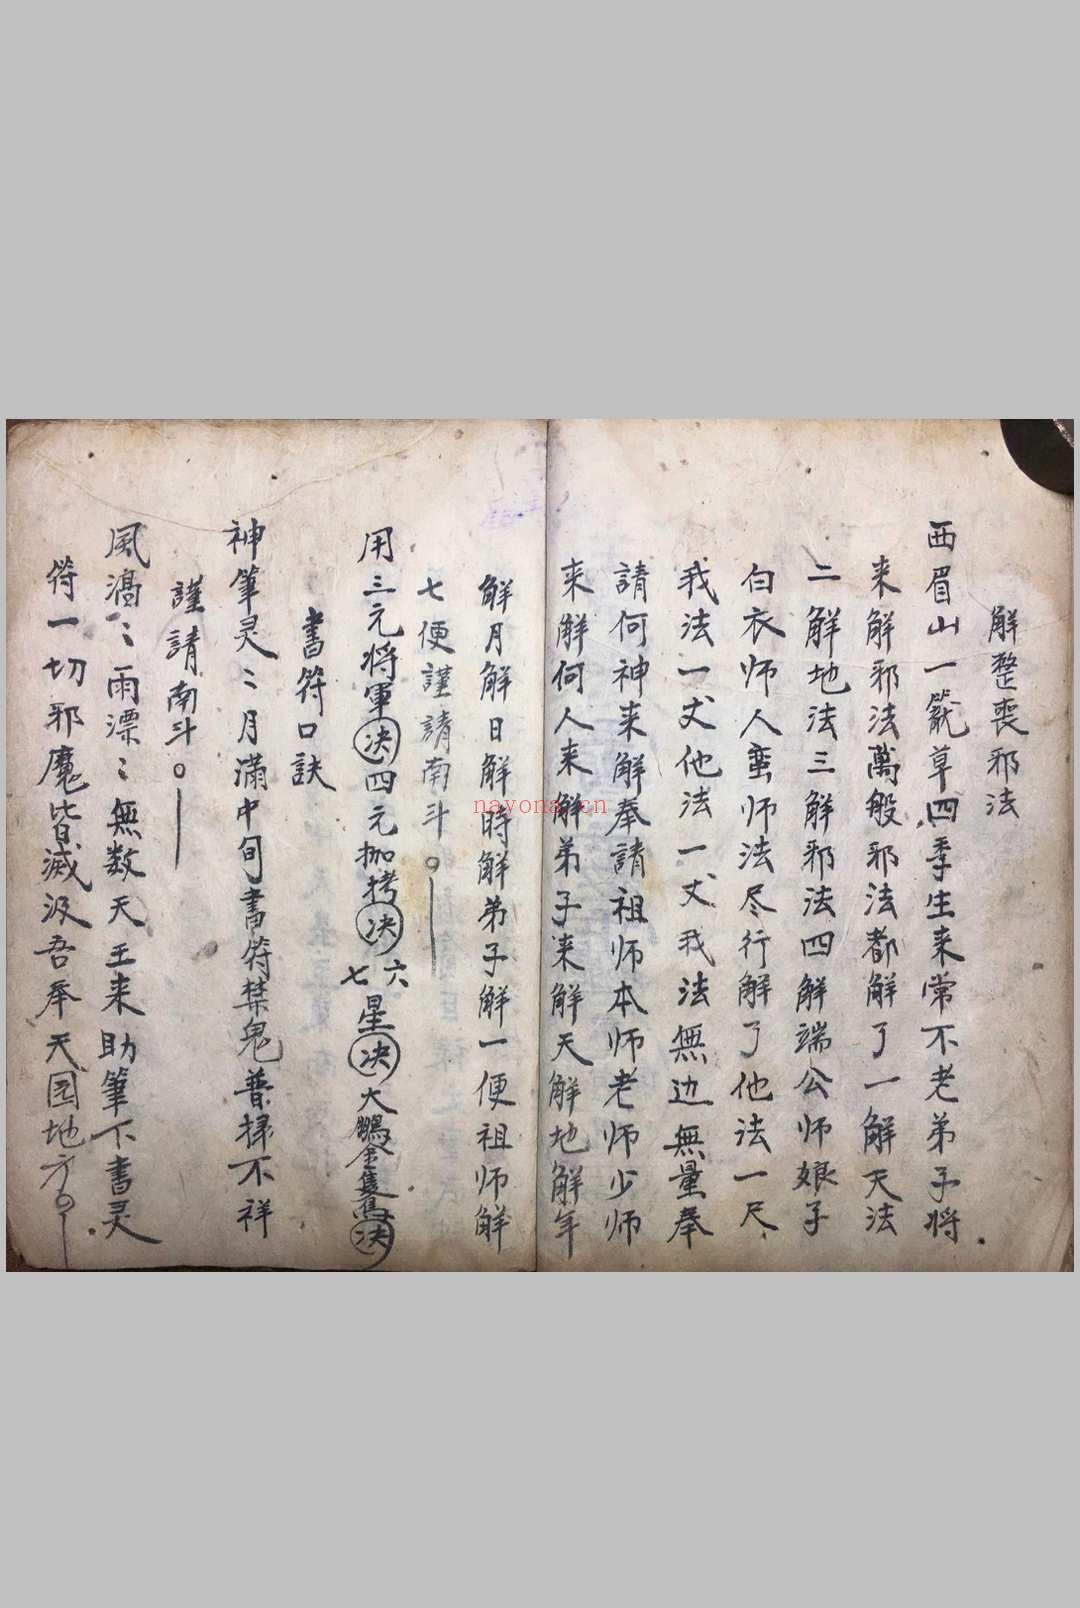 解整喪邪法
西眉山一籠草四季生来常不老弟子将
来解邪法萬般邪法都解了一解天法
二解地法三解邪法四解端公师娘子
白衣师人蛮师法尽行解了他法一尺
我法一丈他法一丈我法無边無量奉
請何神来解奉請祖师本师老师少师
来解何人来解弟子来解天解地解年
解月解日解時解弟子解一便祖师解
七便謹請南斗。
用三元将軍决四元枷拷决六七星决大鵬金隻鳥决
書符口訣
神筆灵〻月滿中旬書符禁鬼普掃不祥
謹請南斗。
風濄〻雨漂〻無数天王来助筆下書灵
符一切邪魔皆滅汲吾奉天圆地方。
nayona.cn